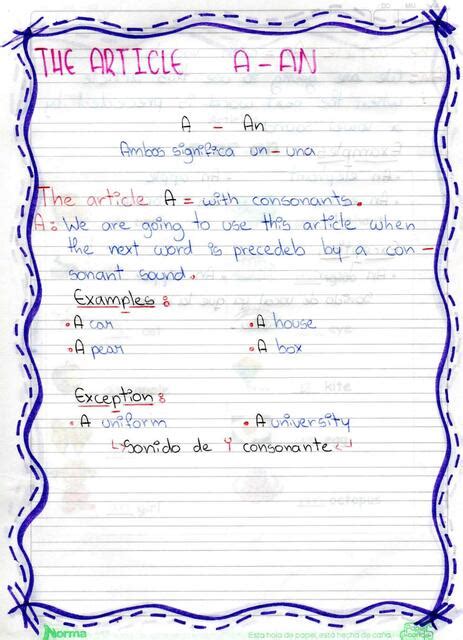 THE ARTICLE A - AN
A - An
Ambos significa un - una
The article A = with consonants.
A: We are going to use this article when
the next word is precedeb by a con -
sonant sound.
Examples:
• A car • A house
• A pear • A box
Exception:
• A uniform • A university
↳sonido de Y consonante↲
Norma Esta hoja de papel, está hecha de caña.